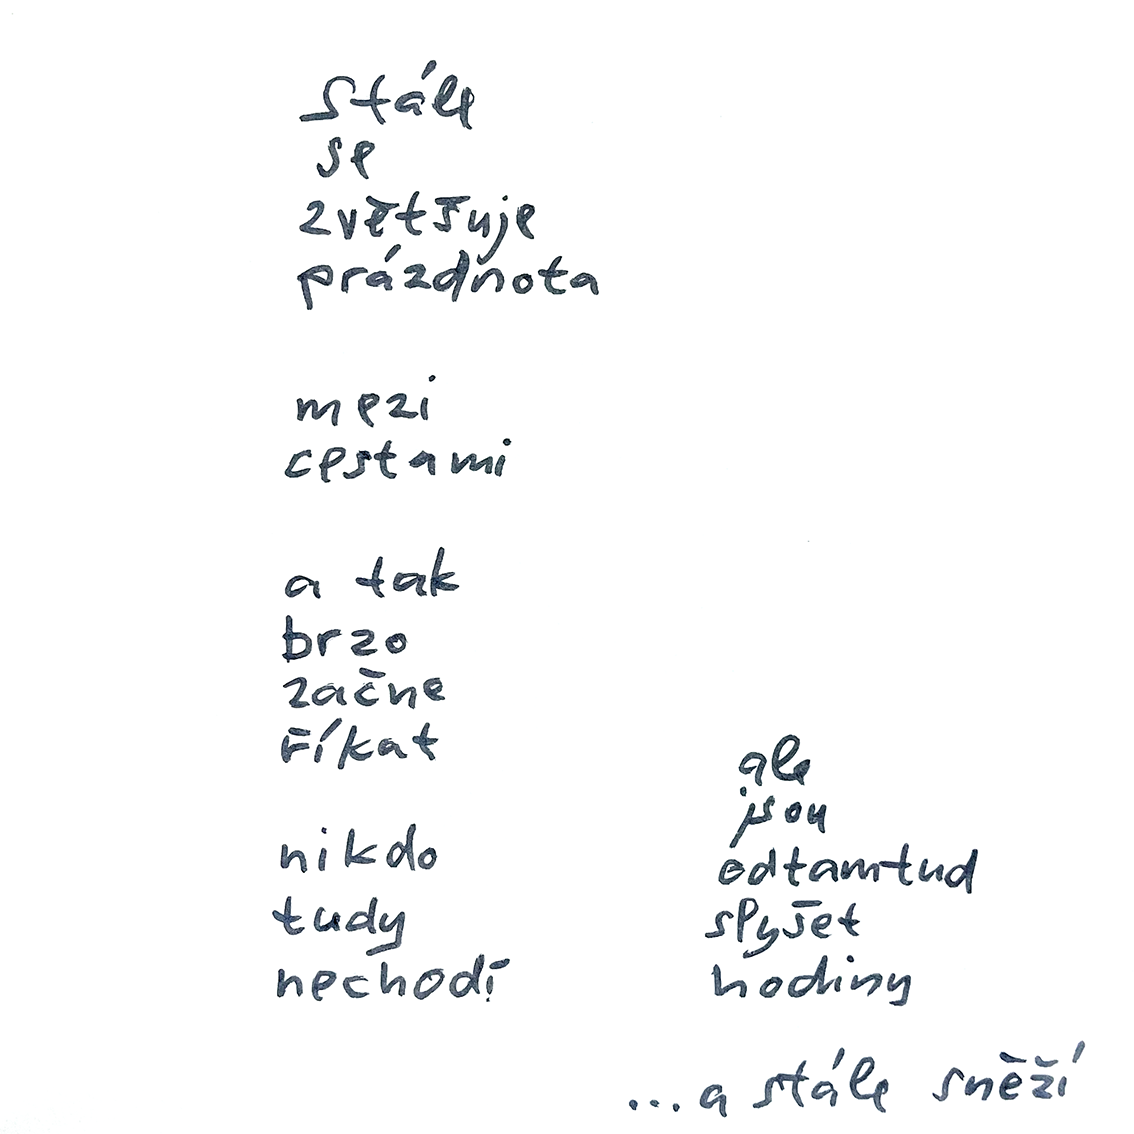 stále
se
zvětšuje
prázdnota
mezi
cestami
a tak
brzo
začne
říkat
nikdo
tudy
nechodí
ale
jsou
odtamtud
slyšet
hodiny
...a stále sněží